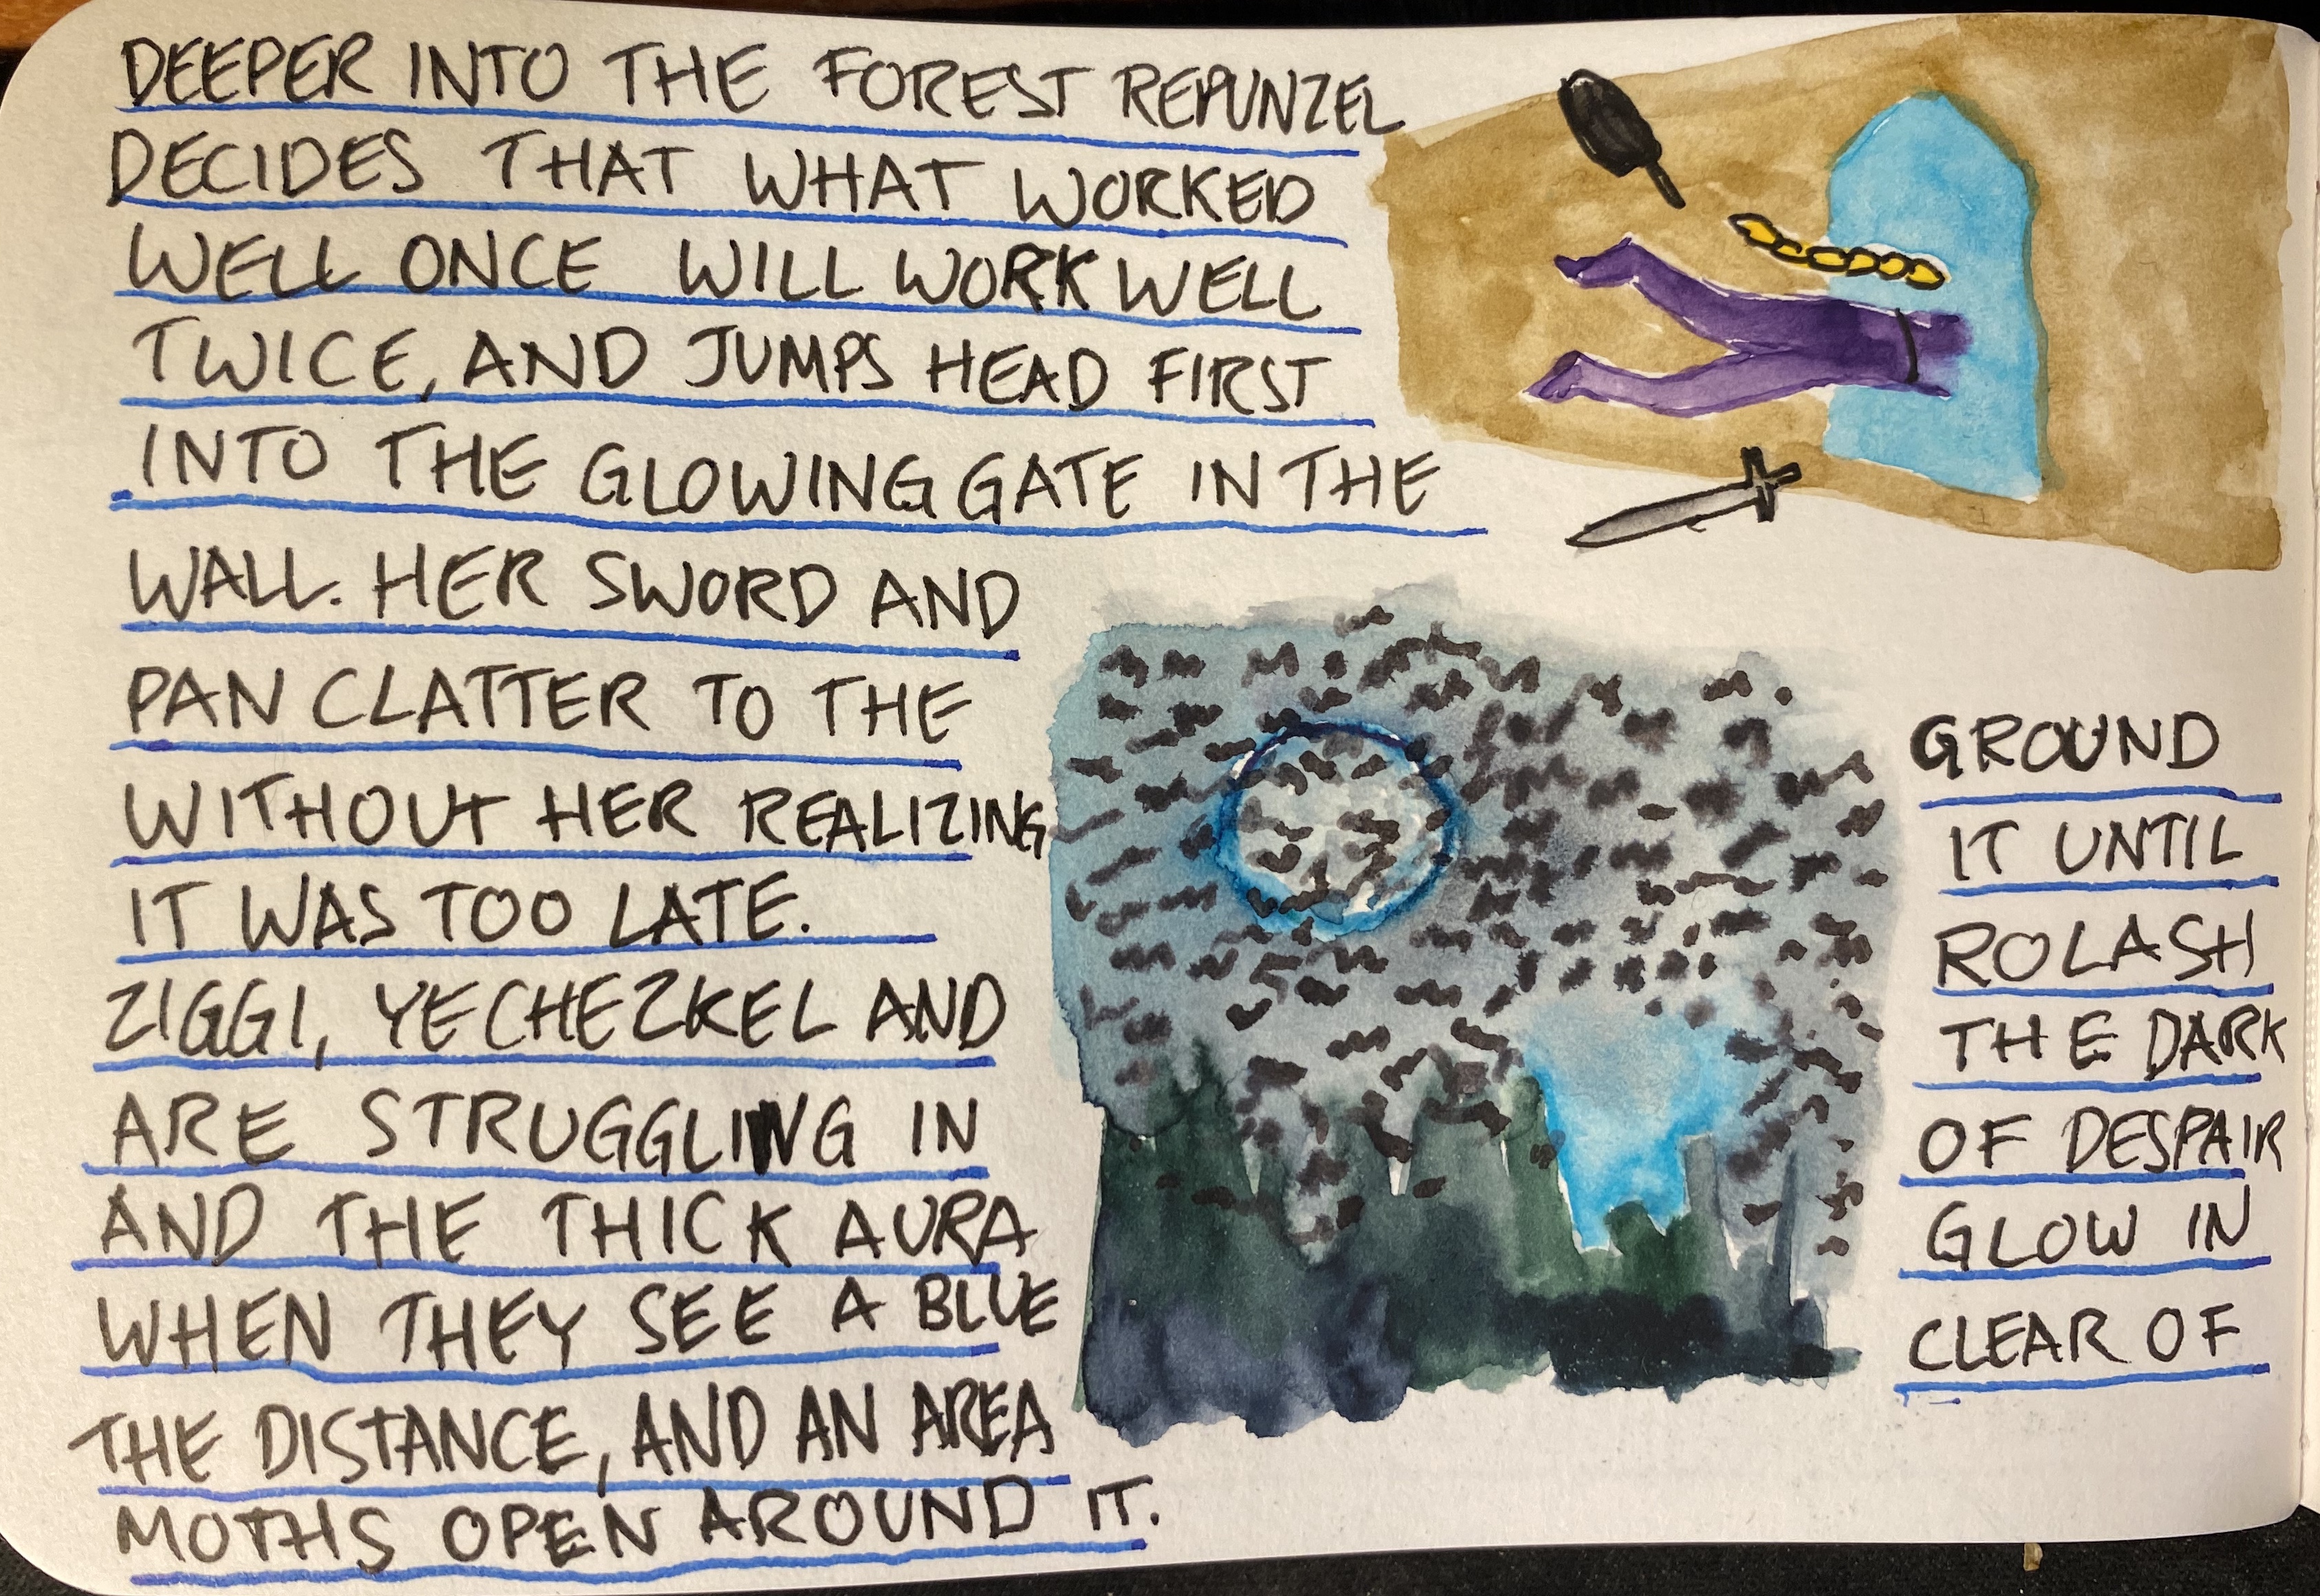 DEEPER INTO THE FOREST REPUNZEL
DECIDES THAT WHAT WORKED
WELL ONCE WILL WORK WELL
TWICE, AND JUMPS HEAD FIRST
INTO THE GLOWING GATE IN THE
WALL. HER SWORD AND
PAN CLATTER TO THE GROUND
WITHOUT HER REALIZING IT UNTIL
IT WAS TOO LATE.
ZIGGI, YECHEZKEL AND ROLASH
ARE STRUGGLING IN THE DARK
AND THE THICK AURA OF DESPAIR
WHEN THEY SEE A BLUE GLOW IN
THE DISTANCE, AND AN AREA CLEAR OF
MOTHS OPEN AROUND IT.